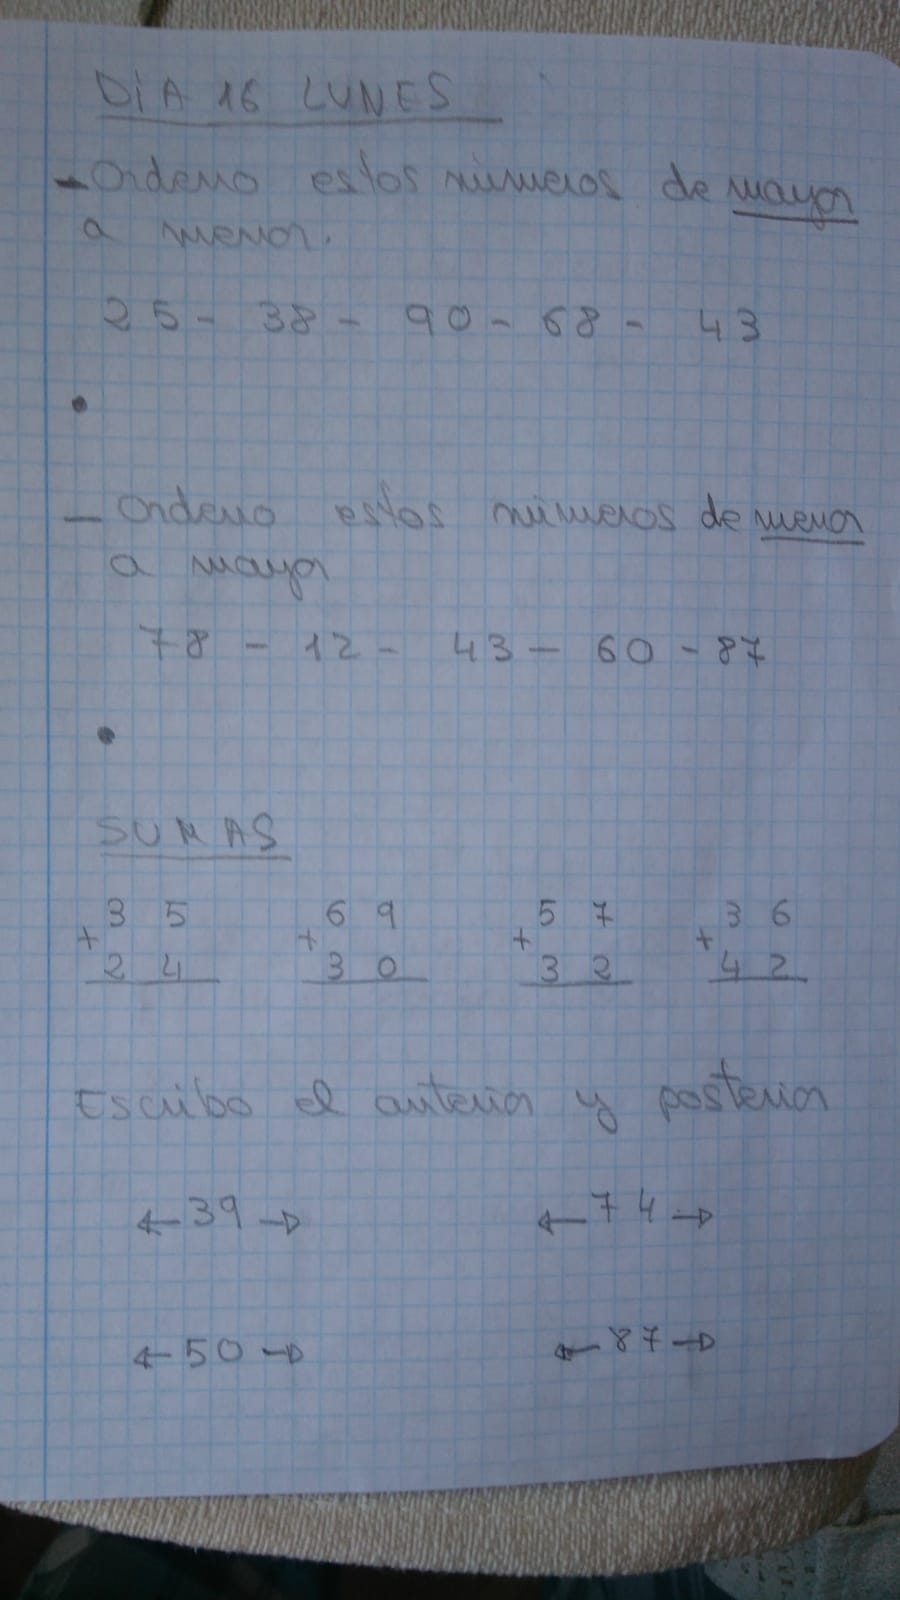 DÍA 16 LUNES
- Ordeno estos números de mayor
a menor.
25 - 38 - 90 - 68 - 43
•
- Ordeno estos números de menor
a mayor
78 - 12 - 43 - 60 - 87
•
SUMAS
35 69 57 36
+ + + +
24 30 32 42
Escribo el anterior y posterior
← 39 → ← 74 →
← 50 → ← 87 →